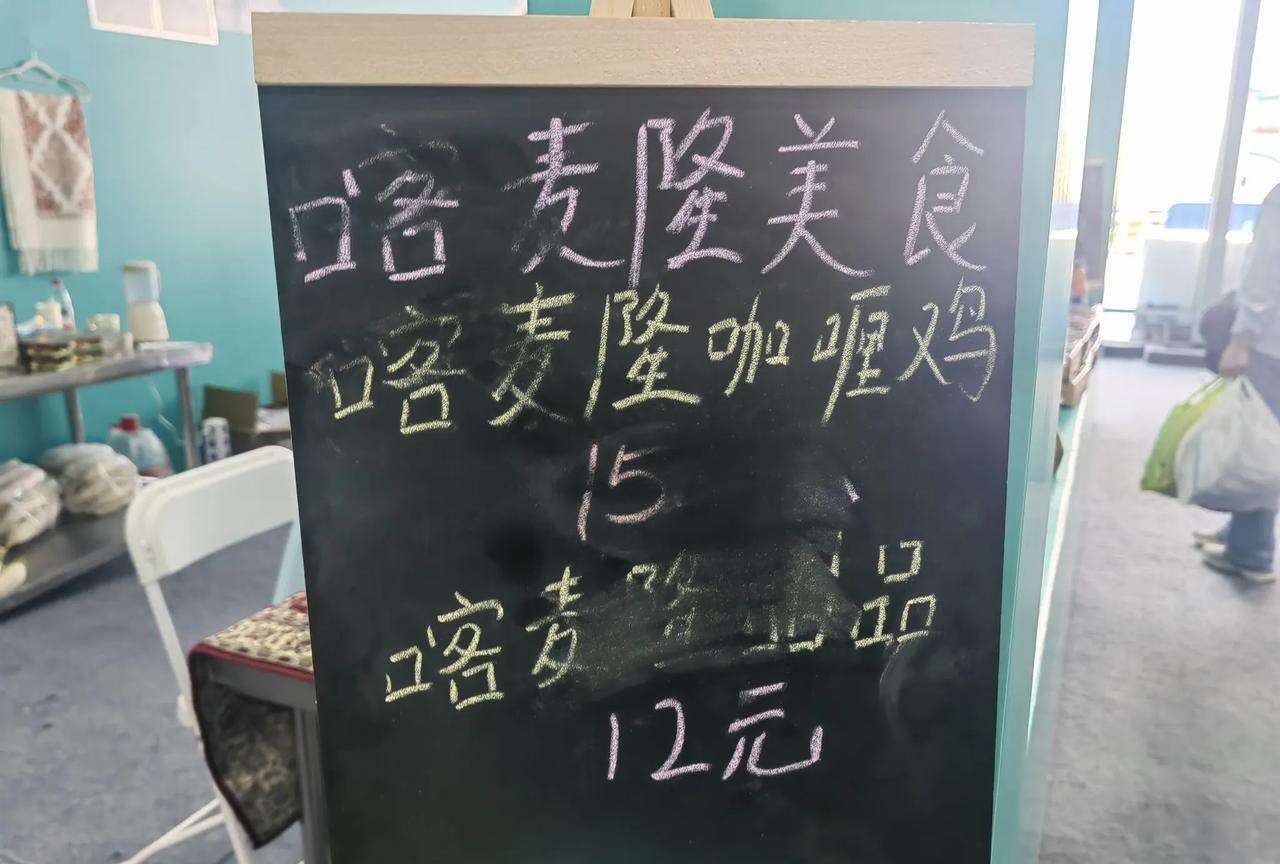 喀麦隆美食
喀麦隆咖喱鸡
15
喀麦 品
12元